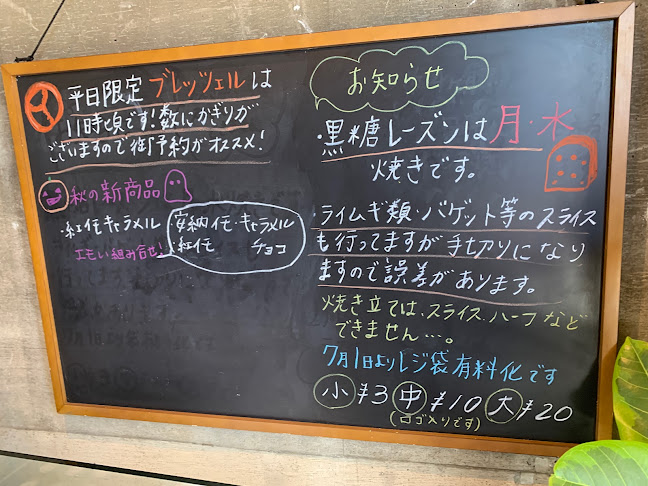 平日限定 ブレッツェルは
11時頃です!数にかぎりが
ございますので御予約がオススメ!
秋の新商品
・紅イモキャラメル
エモい組み合せ!
安納イモ・キャラメル
・紅イモ チョコ
お知らせ
・黒糖レーズンは月・水
焼きです。
・ライムギ類・バゲット等のスライス
も行ってますが手切りになり
ますので誤差があります。
焼き立ては、スライス、ハーフなど
できません…。
7月1日よりレジ袋有料化です
小 ¥3 中 ¥10 大 ¥20
(ロゴ入りです)